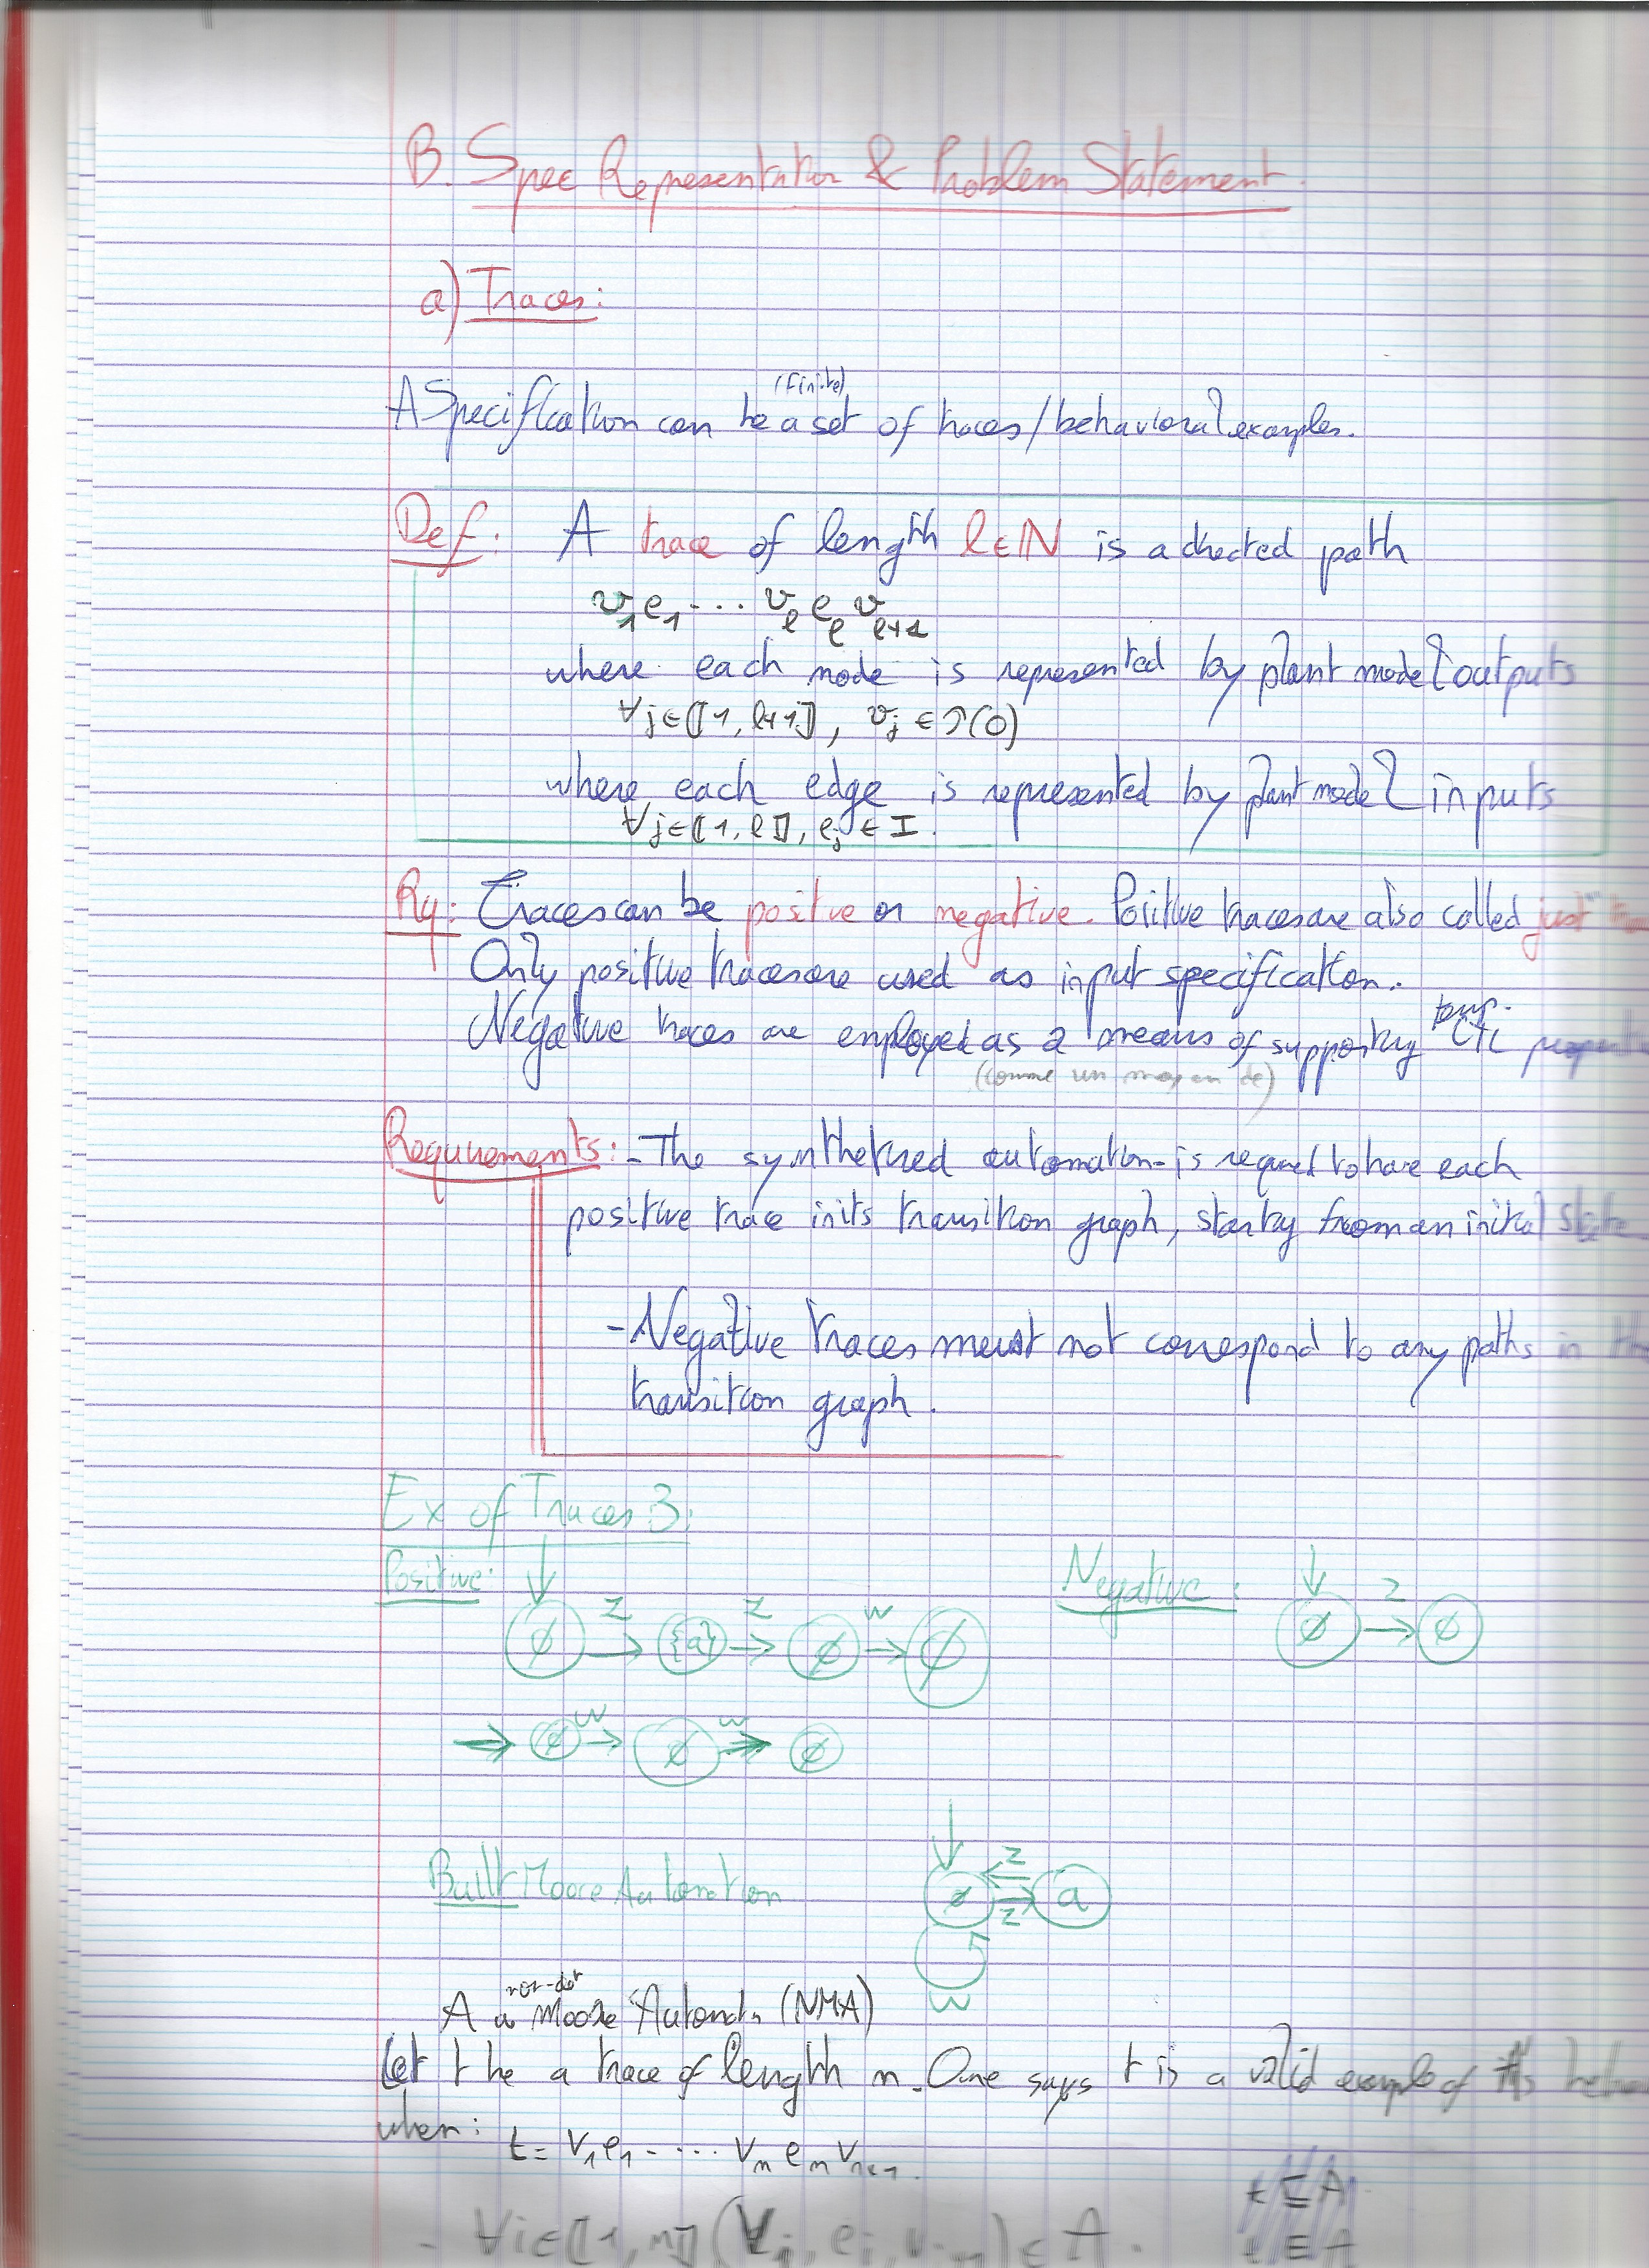 B. Spec Representation & Problem Statement.
a) Traces:
(finite)
A Specification can be a set of traces/behavioral examples.
Def: A trace of length l∈ℕ is a directed path
v₁e₁ ···· v_l e_l v_{l+1}
where each node is represented by plant model outputs
∀j∈⟦1, l+1⟧, v_j ∈ 𝒫(O)
where each edge is represented by plant model inputs
∀j∈⟦1, l⟧, e_j ∈ I.
Rq: Traces can be positive or negative. Positive traces are also called just
Only positive traces are used as input specification.
temp.
Negative traces are employed as a means of supporting CTL
(comme un moyen de)
Requirements: - The synthetized automation is required to have each
positive trace in its transition graph, starting from an initial state
- Negative traces must not correspond to any paths in the
transition graph.
Ex of Traces 3:
Positive: Negative:
∅ z {a} z ∅ w ∅ ∅ z ∅
∅ w ∅ w ∅
Built Moore Automation
∅ z z a
w
non-det
A a Moore Automata (NMA)
Let t be a trace of length n. One says t is a valid example of its
when: t = v₁e₁ - ···· v_n e_n v_{n+1}.
t ⊑ A
- ∀i∈⟦1, n⟧ (v_i, e_i, v_{i+1}) ∈ A.
t ⊑ A